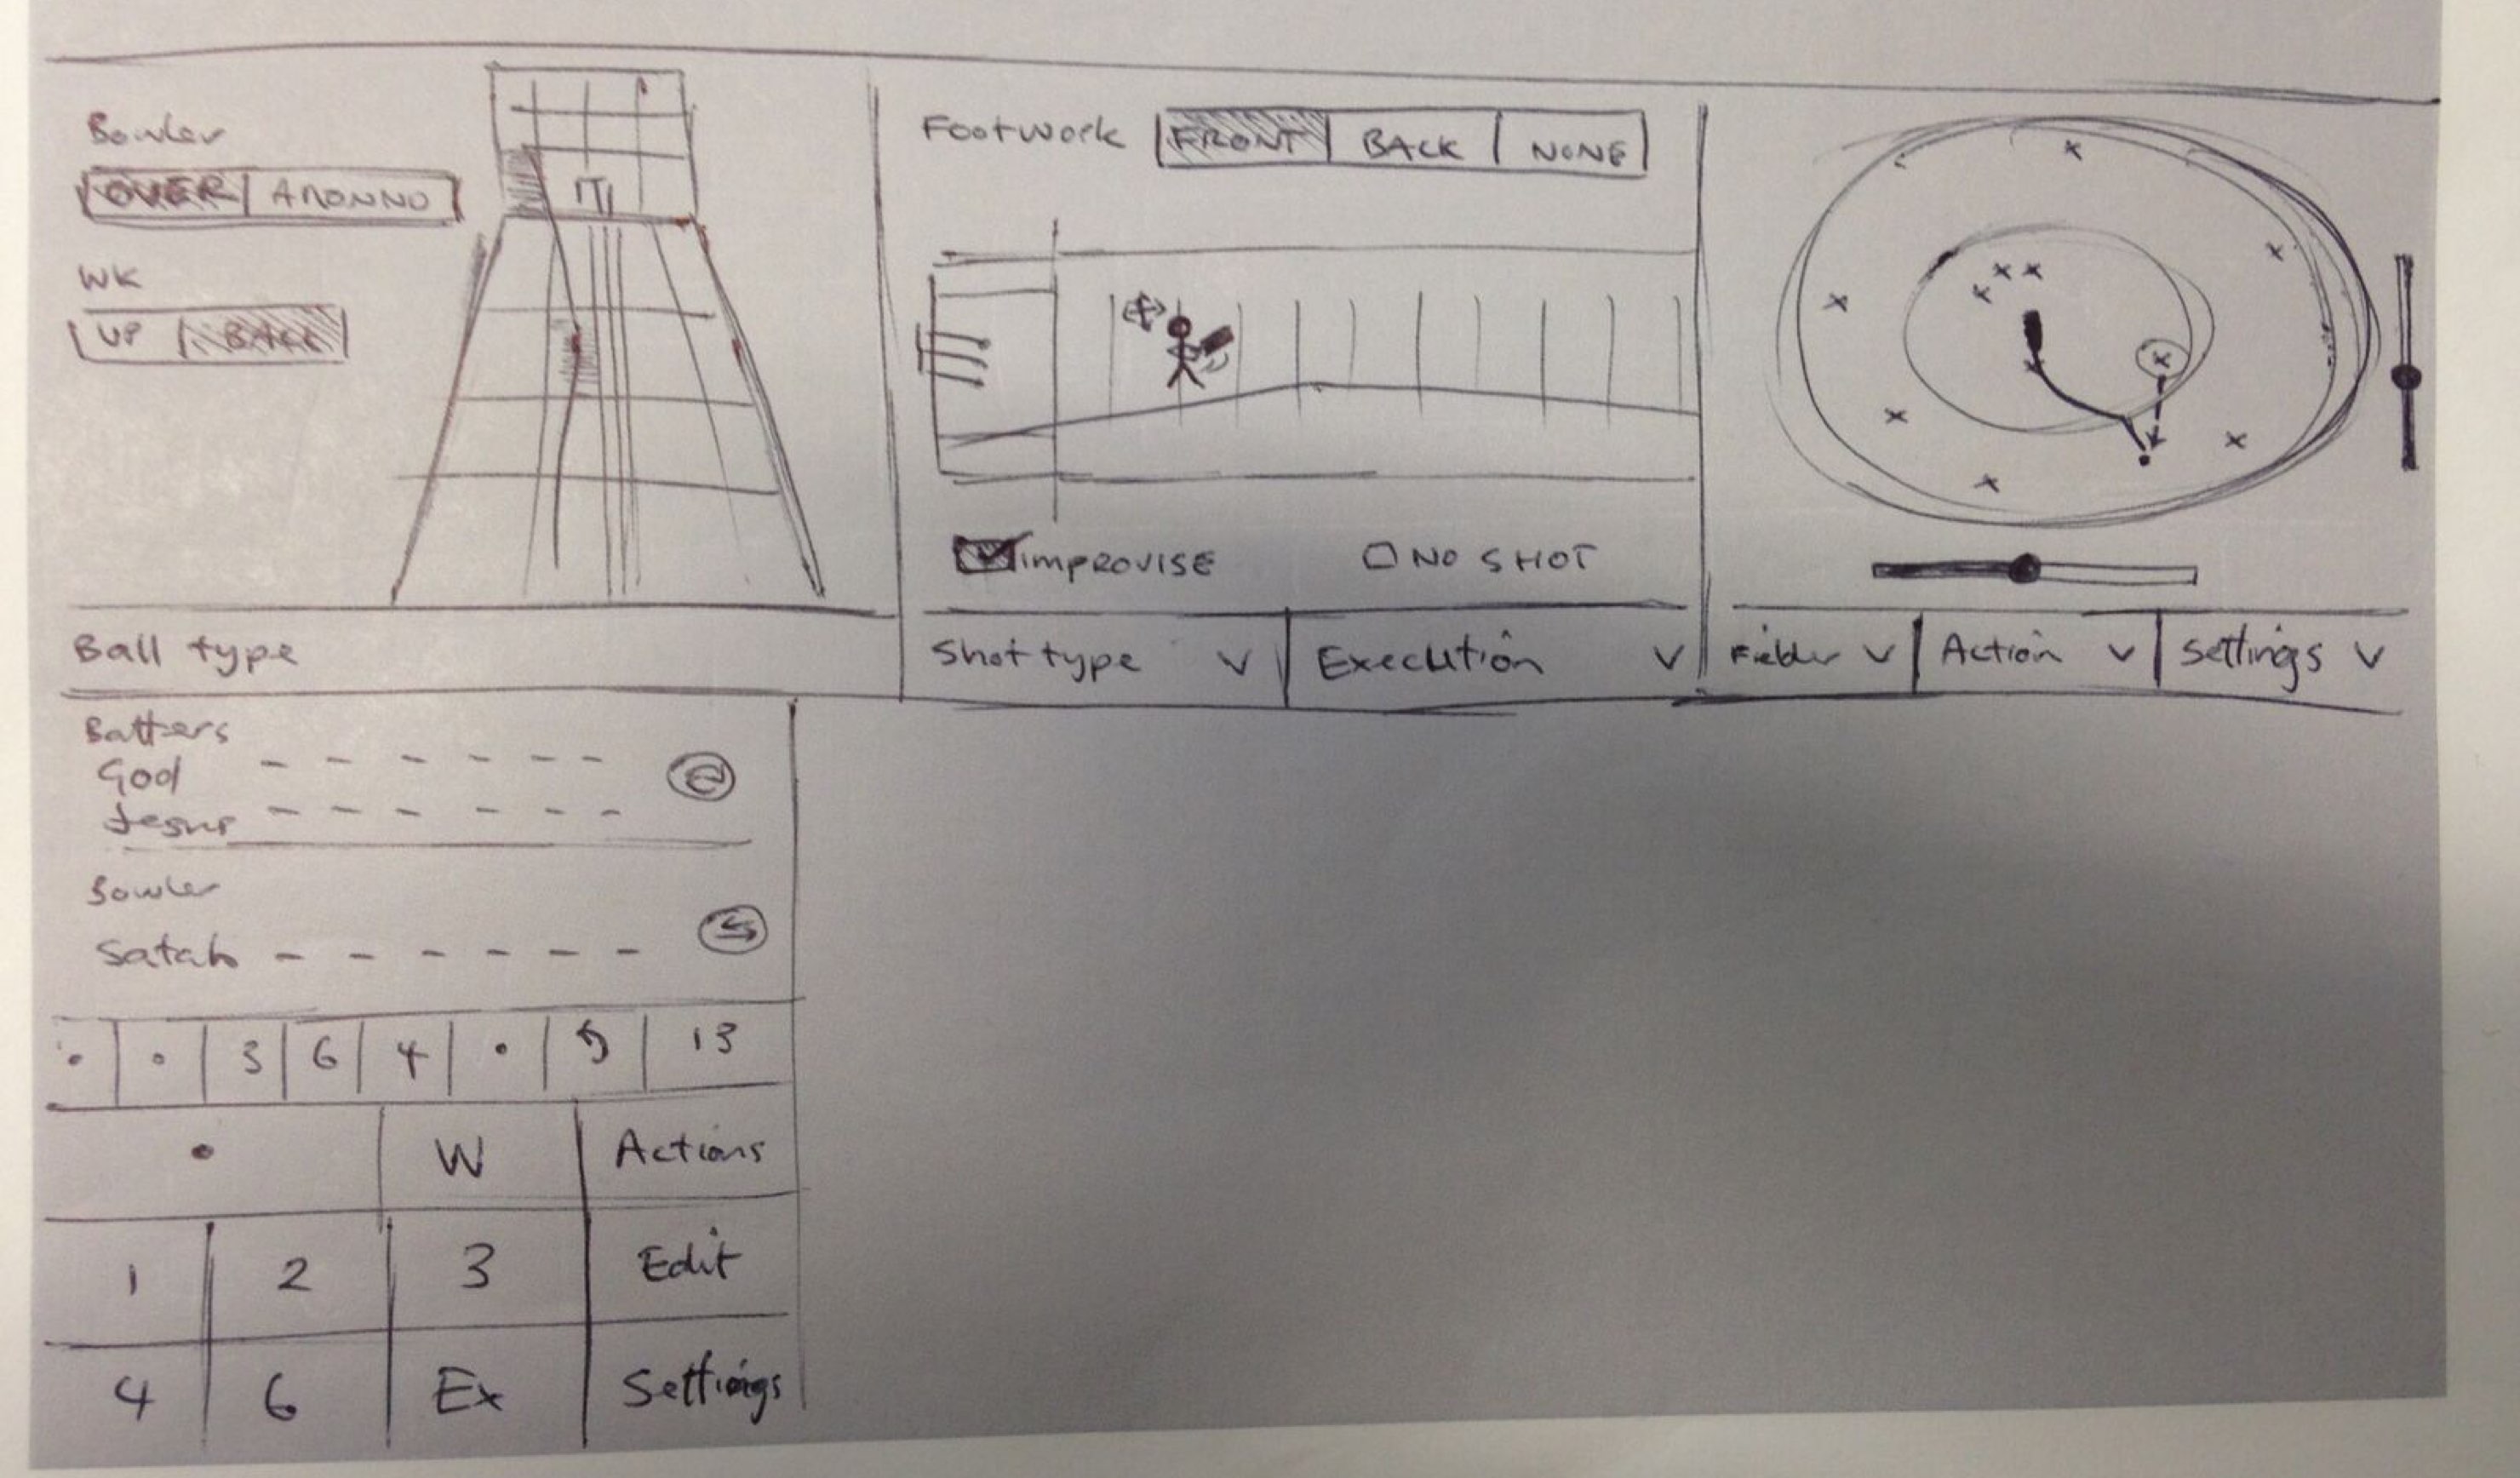 Bowler
OVER AROUND
WK
UP BACK
Ball type
Footwork FRONT BACK NONE
improvise NO SHOT
Shot type V Execution V
Fielder V Action V Settings V
Batters
God
Jesus
Bowler
Satan
• • 3 6 4 • 13
• W Actions
1 2 3 Edit
4 6 Ex Settings